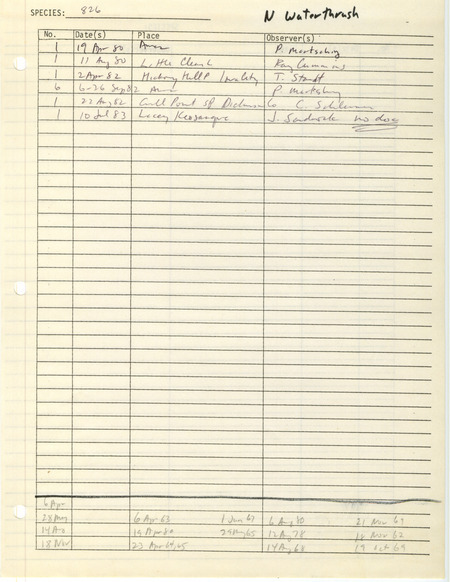 SPECIES: 826 N Waterthrush
No. Date(s) Place Observer(s)
1 19 Apr 80 Ames P. Martsching
1 11 Aug 80 Little Clear L Ray Cummins
1 2 Apr 82 Hickory Hill P T. Staudt
6 6-26 Sep 82 Ames P. Martsching
1 22 Aug 82 Gull Point SP Dickinson Co C.
1 10 Jul 83 Lacey Keosauqua J. Sandrock no doc
6 Apr
28 May 6 Apr 63 1 Jun 67 6 Aug 80 21 Nov 69
14 Au 19 Apr 80 29 May 65 12 Aug 78 18 Nov 62
18 Nov 22 Apr 64,65 14 Aug 68 19 Oct 69